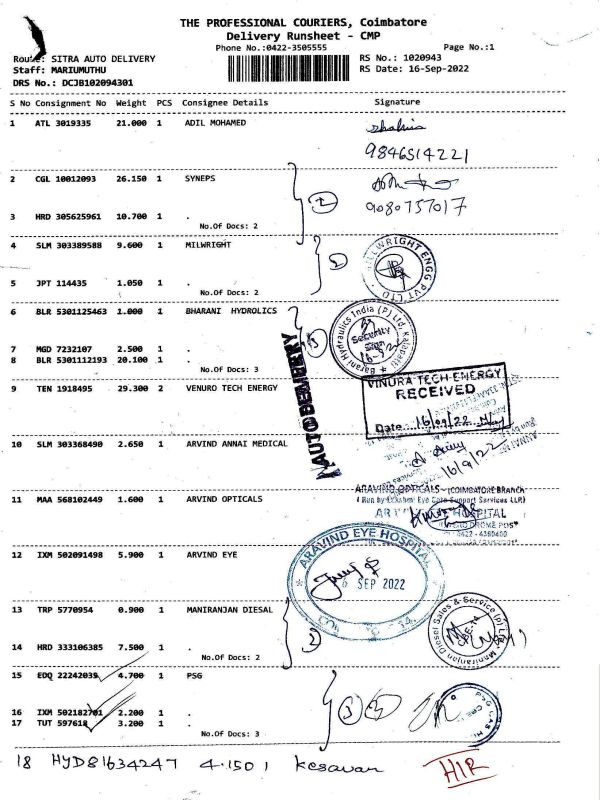 THE PROFESSIONAL COURIERS, Coimbatore
Delivery Runsheet - CMP
Phone No.:0422-3505555 Page No.:1
Route: SITRA AUTO DELIVERY RS No.: 1020943
Staff: MARIUMUTHU RS Date: 16-Sep-2022
DRS No.: DCJB102094301
S No Consignment No Weight PCS Consignee Details Signature
1 ATL 3019335 21.000 1 ADIL MOHAMED
9846514221
2 CGL 10012093 26.150 1 SYNEPS
9080757017
3 HRD 305625961 10.700 1 .
No.Of Docs: 2
4 SLM 303389588 9.600 1 MILWRIGHT
MILLWRIGHT ENGG PVT LTD
5 JPT 114435 1.050 1 .
No.Of Docs: 2
6 BLR 5301125463 1.000 1 BHARANI HYDROLICS
Barani Hydraulics India (P) Ltd.
Security
Sign
7 MGD 7232107 2.500 1 .
8 BLR 5301112193 20.100 1 .
No.Of Docs: 3
9 TEN 1918495 29.300 2 VENURO TECH ENERGY
VINURA TECH ENERGY
RECEIVED
Date 16/09/22
10 SLM 303368490 2.650 1 ARVIND ANNAI MEDICAL
16/9/22
11 MAA 568102449 1.600 1 ARVIND OPTICALS
ARAVIND OPTICALS - (COIMBATORE BRANCH
HOSPITAL
12 IXM 502091498 5.900 1 ARVIND EYE
ARAVIND EYE HOSPITAL
SEP 2022
13 TRP 5770954 0.900 1 MANIRANJAN DIESAL
Maniranjan Diesel Sales & Service (p) Ltd
14 HRD 333106385 7.500 1 .
No.Of Docs: 2
15 EDQ 22242039 4.700 1 PSG
16 IXM 502182701 2.200 1 .
17 TUT 597618 3.200 1 .
No.Of Docs: 3
18 HYD81634247 4.150 1 Kesavan
HIR